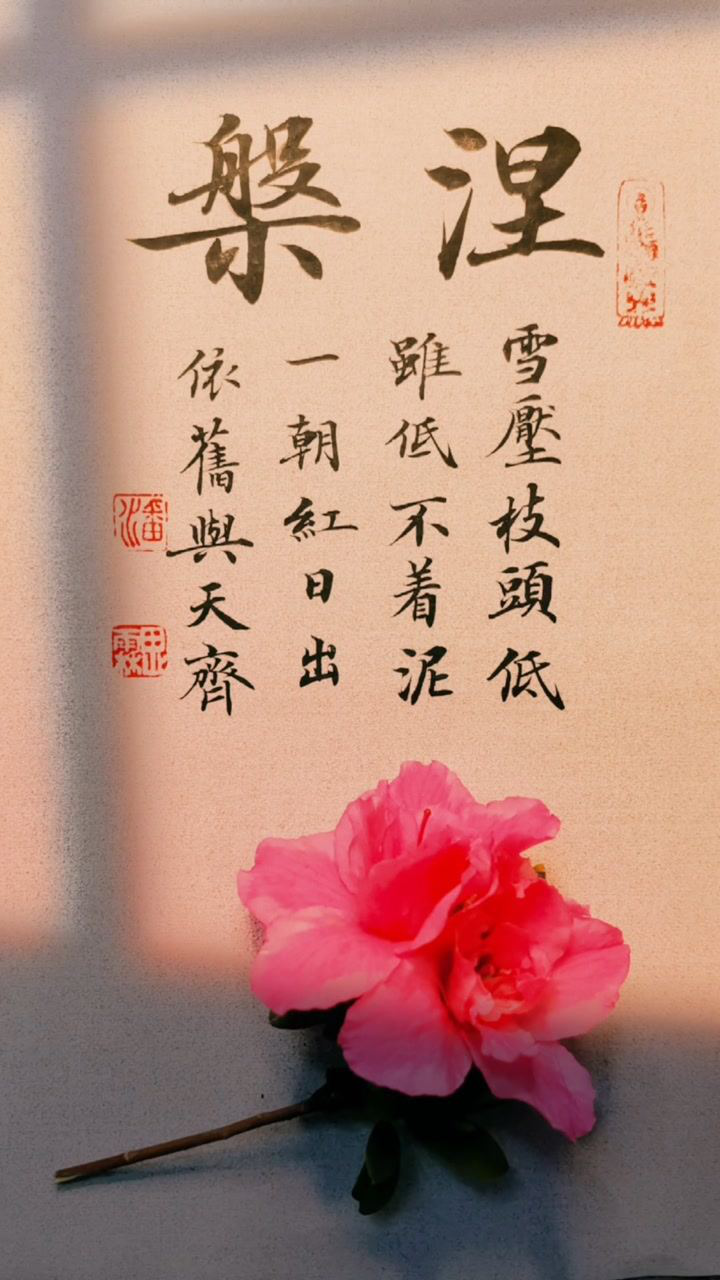 涅槃
雪壓枝頭低
雖低不着泥
一朝紅日出
依舊與天齊
潘